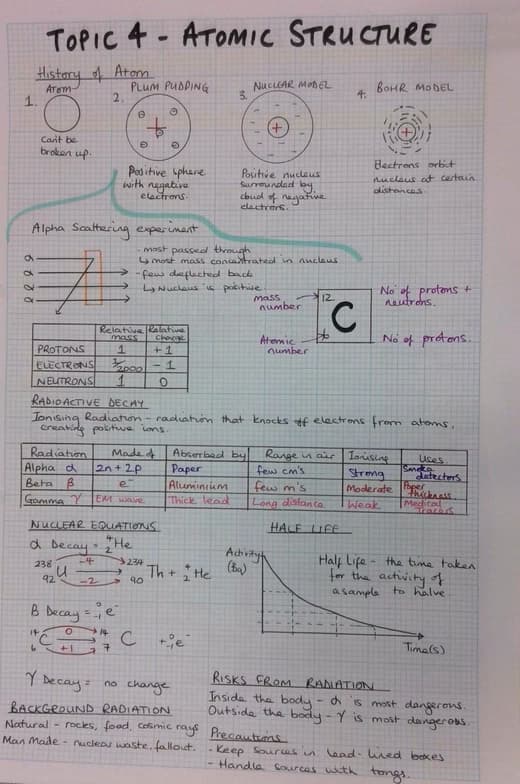 TOPIC 4 - ATOMIC STRUCTURE
History of Atom
1. Atom
Can't be
broken up.
2. PLUM PUDDING
Positive sphere
with negative
electrons.
3. NUCLEAR MODEL
Positive nucleus
surrounded by
cloud of negative
electrons.
4. BOHR MODEL
Electrons orbit
nucleus at certain
distances.
Alpha Scattering experiment
α
α
α
α
- most passed through
↳ most mass concentrated in nucleus
- few deflected back
↳ Nucleus is positive.
mass number
12
C
Atomic number
No of protons +
neutrons.
No of protons.
Relative mass Relative charge
PROTONS 1 +1
ELECTRONS 1/2000 -1
NEUTRONS 1 0
RADIOACTIVE DECAY
Ionising Radiation - radiation that knocks off electrons from atoms,
creating positive ions.
Radiation Made of Absorbed by Range in air Ionising Uses
Alpha α 2n + 2p Paper few cm's Strong Smoke detectors
Beta β e⁻ Aluminium few m's Moderate Paper thickness
Gamma γ EM wave Thick lead Long distance Weak Medical tracers
NUCLEAR EQUATIONS
α Decay = 4 2 He
238 92 U -4 -2 234 90 Th + 4 2 He
β Decay = 0 -1 e⁻
14 6 C 0 +1 14 7 C + 0 -1 e⁻
γ Decay = no change
HALF LIFE
Activity
(Bq)
Time(s)
Half Life - the time taken
for the activity of
a sample to halve
BACKGROUND RADIATION
Natural - rocks, food, cosmic rays
Man Made - nuclear waste, fallout.
RISKS FROM RADIATION
Inside the body - α is most dangerous.
Outside the body - γ is most dangerous.
Precautions
- Keep sources in lead-lined boxes
- Handle sources with tongs.